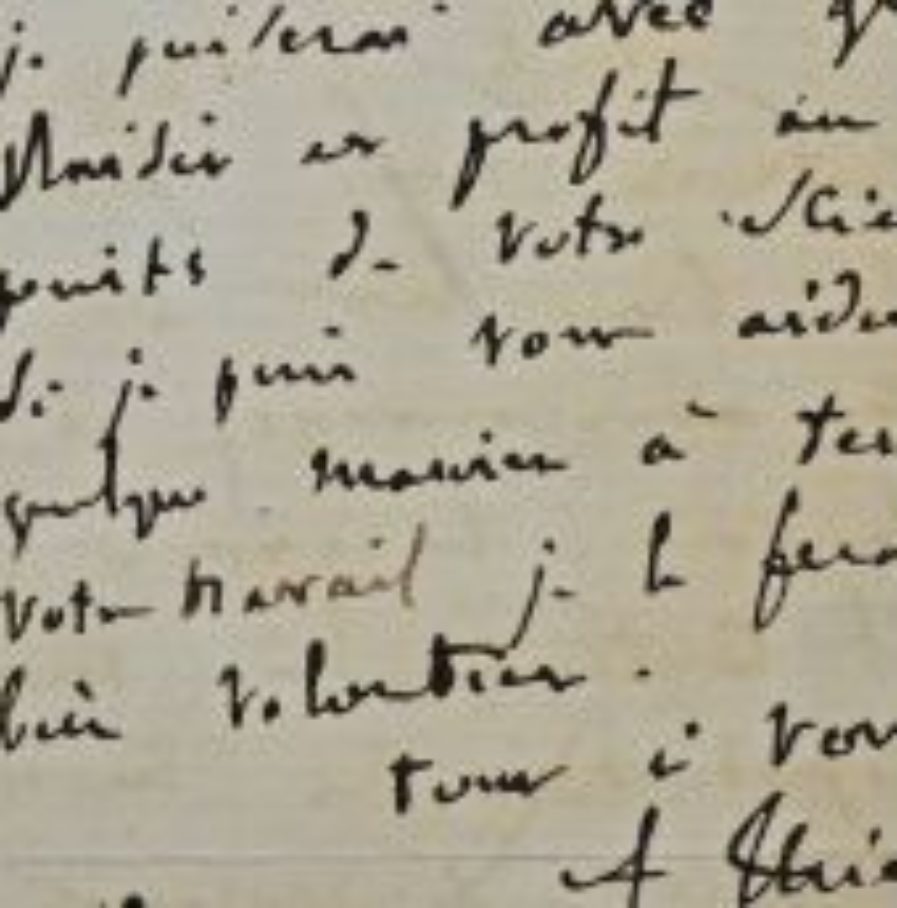 je puiserai avec
plaisir et profit au
puits de votre scie
si je puis vous aider
quelque manière à ter
votre travail je le fera
bien volontiers.
tout à vou
A Thie